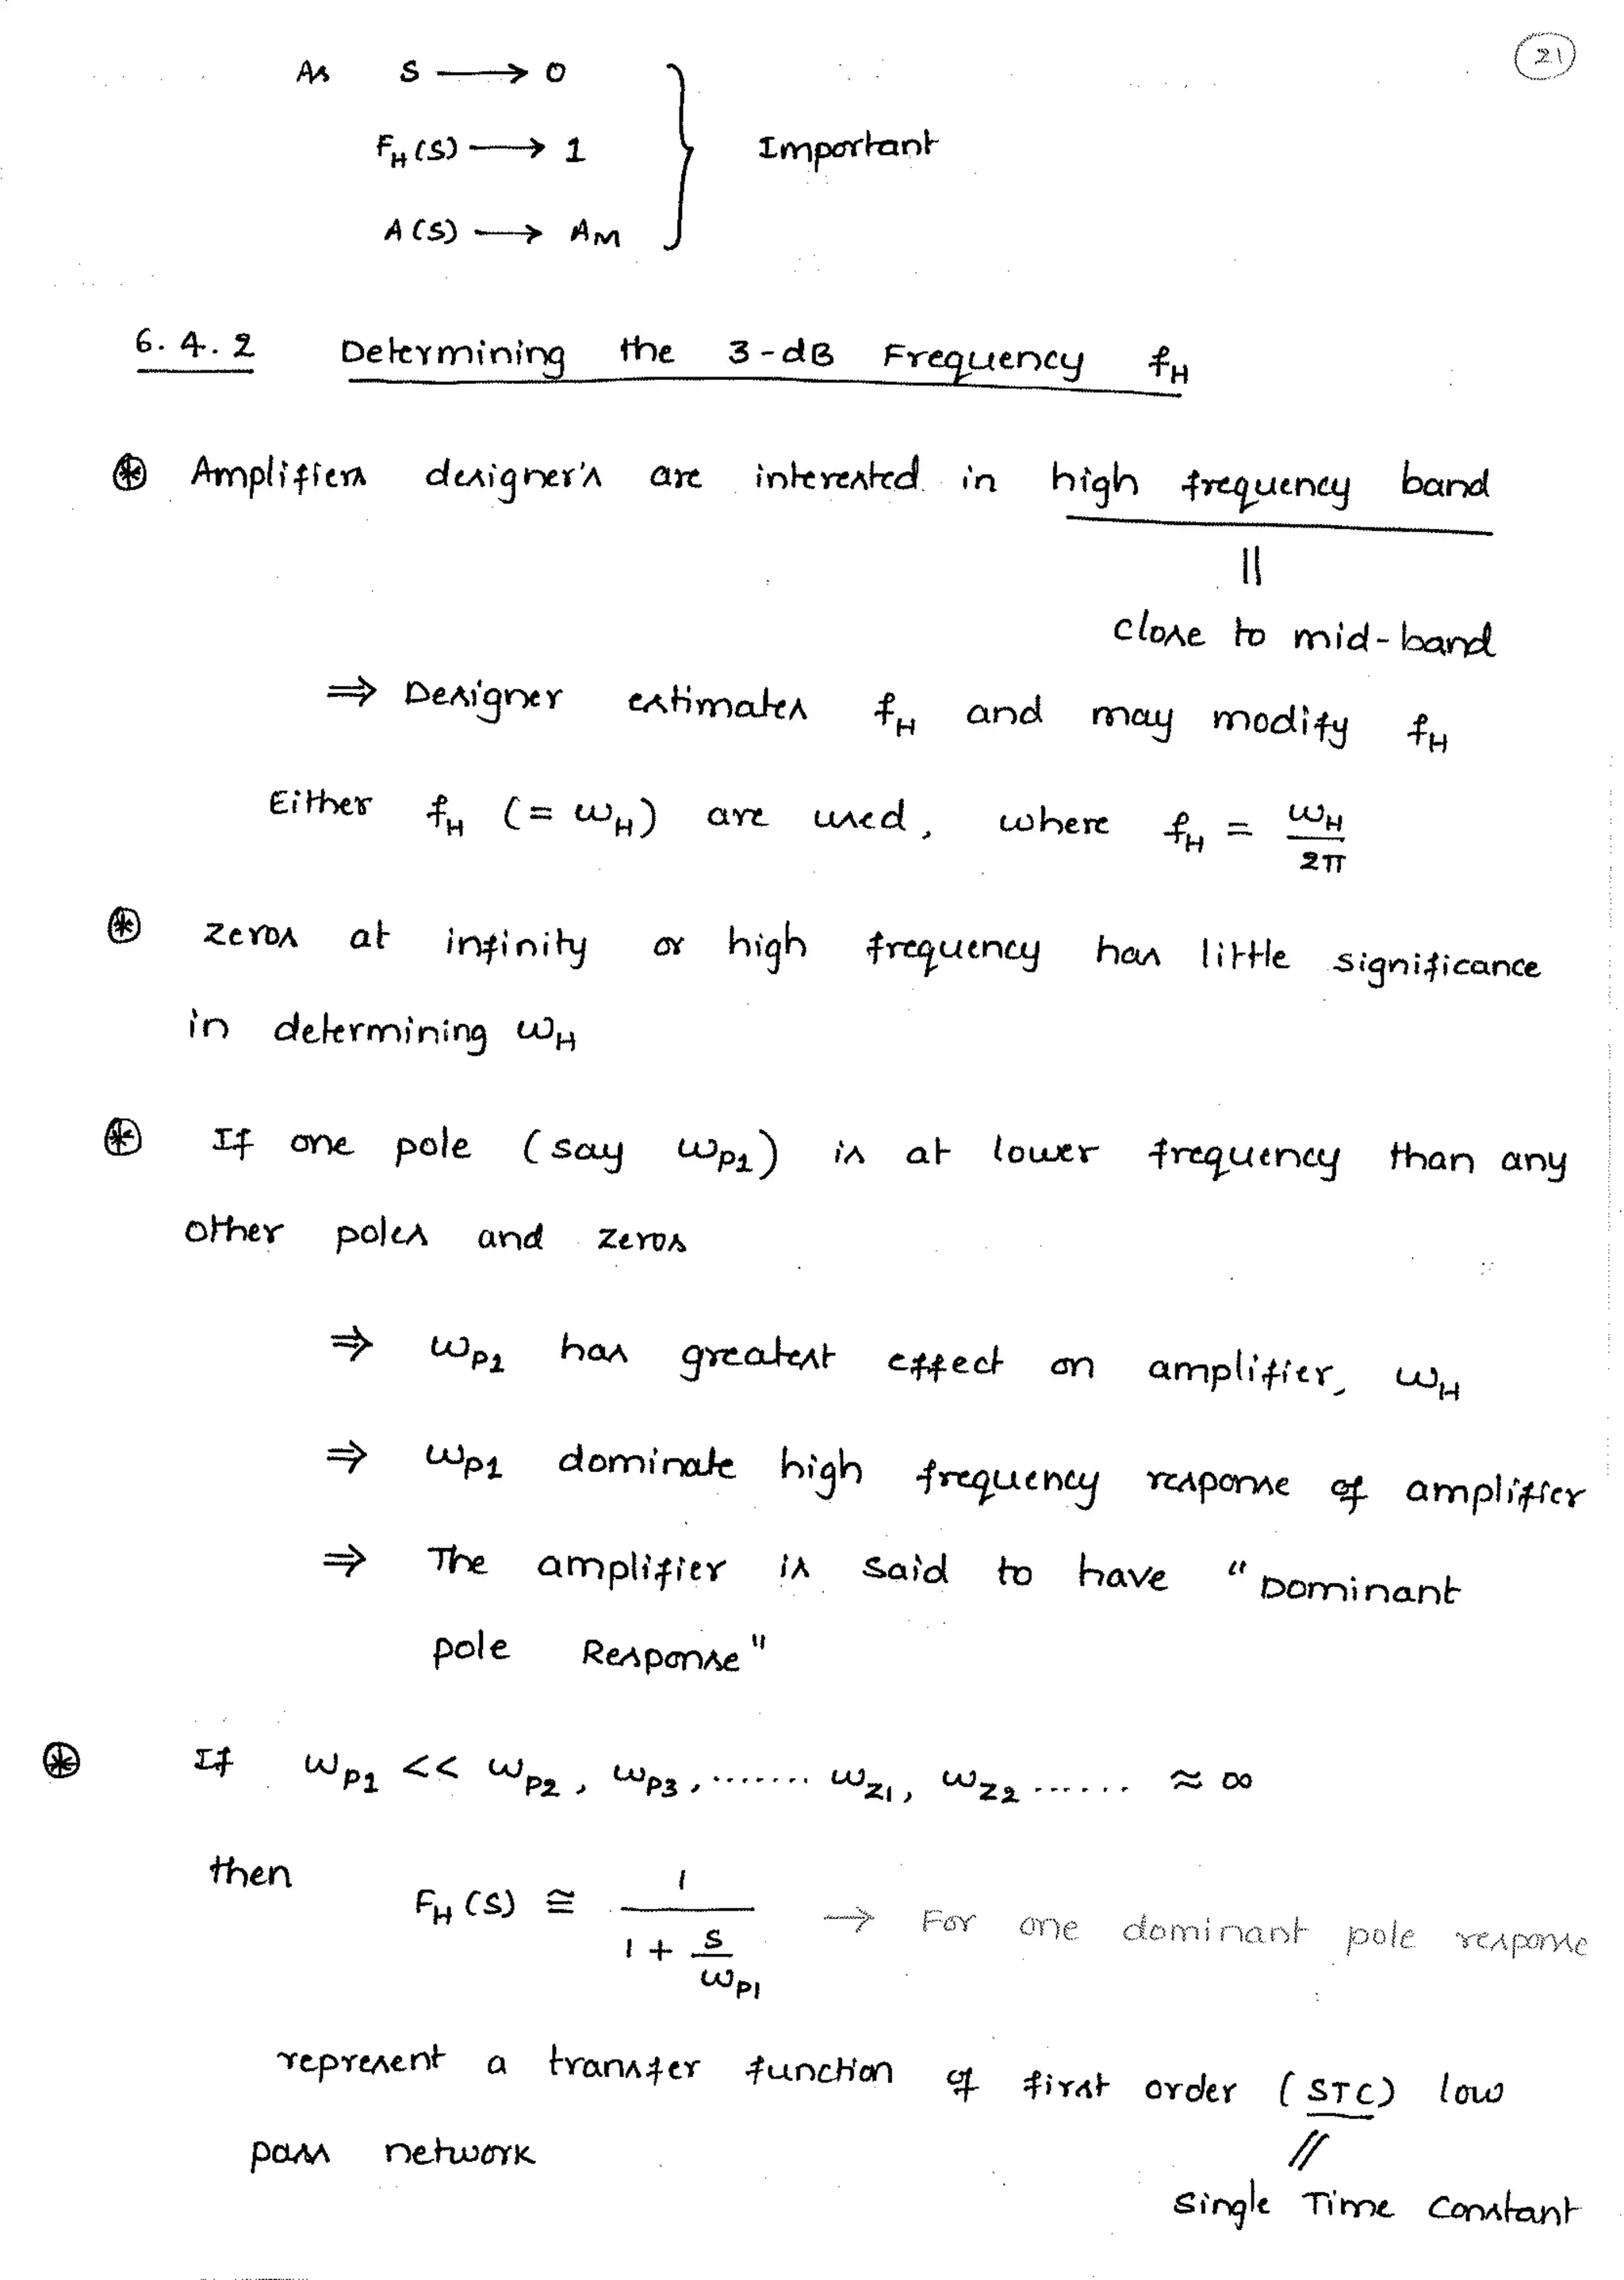 21
As S ⟶ 0
F_H(S) ⟶ 1 } Important
A(S) ⟶ A_M
6.4.2 Determining the 3-dB Frequency f_H
⊛ Amplifiers designer's are interested in high frequency band
||
close to mid-band
⇒ Designer estimates f_H and may modify f_H
Either f_H (= ω_H) are used, where f_H = ω_H / 2π
⊛ Zeros at infinity or high frequency has little significance
in determining ω_H
⊛ If one pole (say ω_P1) is at lower frequency than any
other poles and zeros
⇒ ω_P1 has greatest effect on amplifier, ω_H
⇒ ω_P1 dominate high frequency response of amplifier
⇒ The amplifier is said to have "Dominant
pole Response"
⊛ If ω_P1 << ω_P2, ω_P3, ....... ω_Z1, ω_Z2 ...... ≈ ∞
then F_H(S) ≅ 1 / (1 + S/ω_P1) → For one dominant pole response
represent a transfer function of first order (STC) low
pass network
//
Single Time Constant